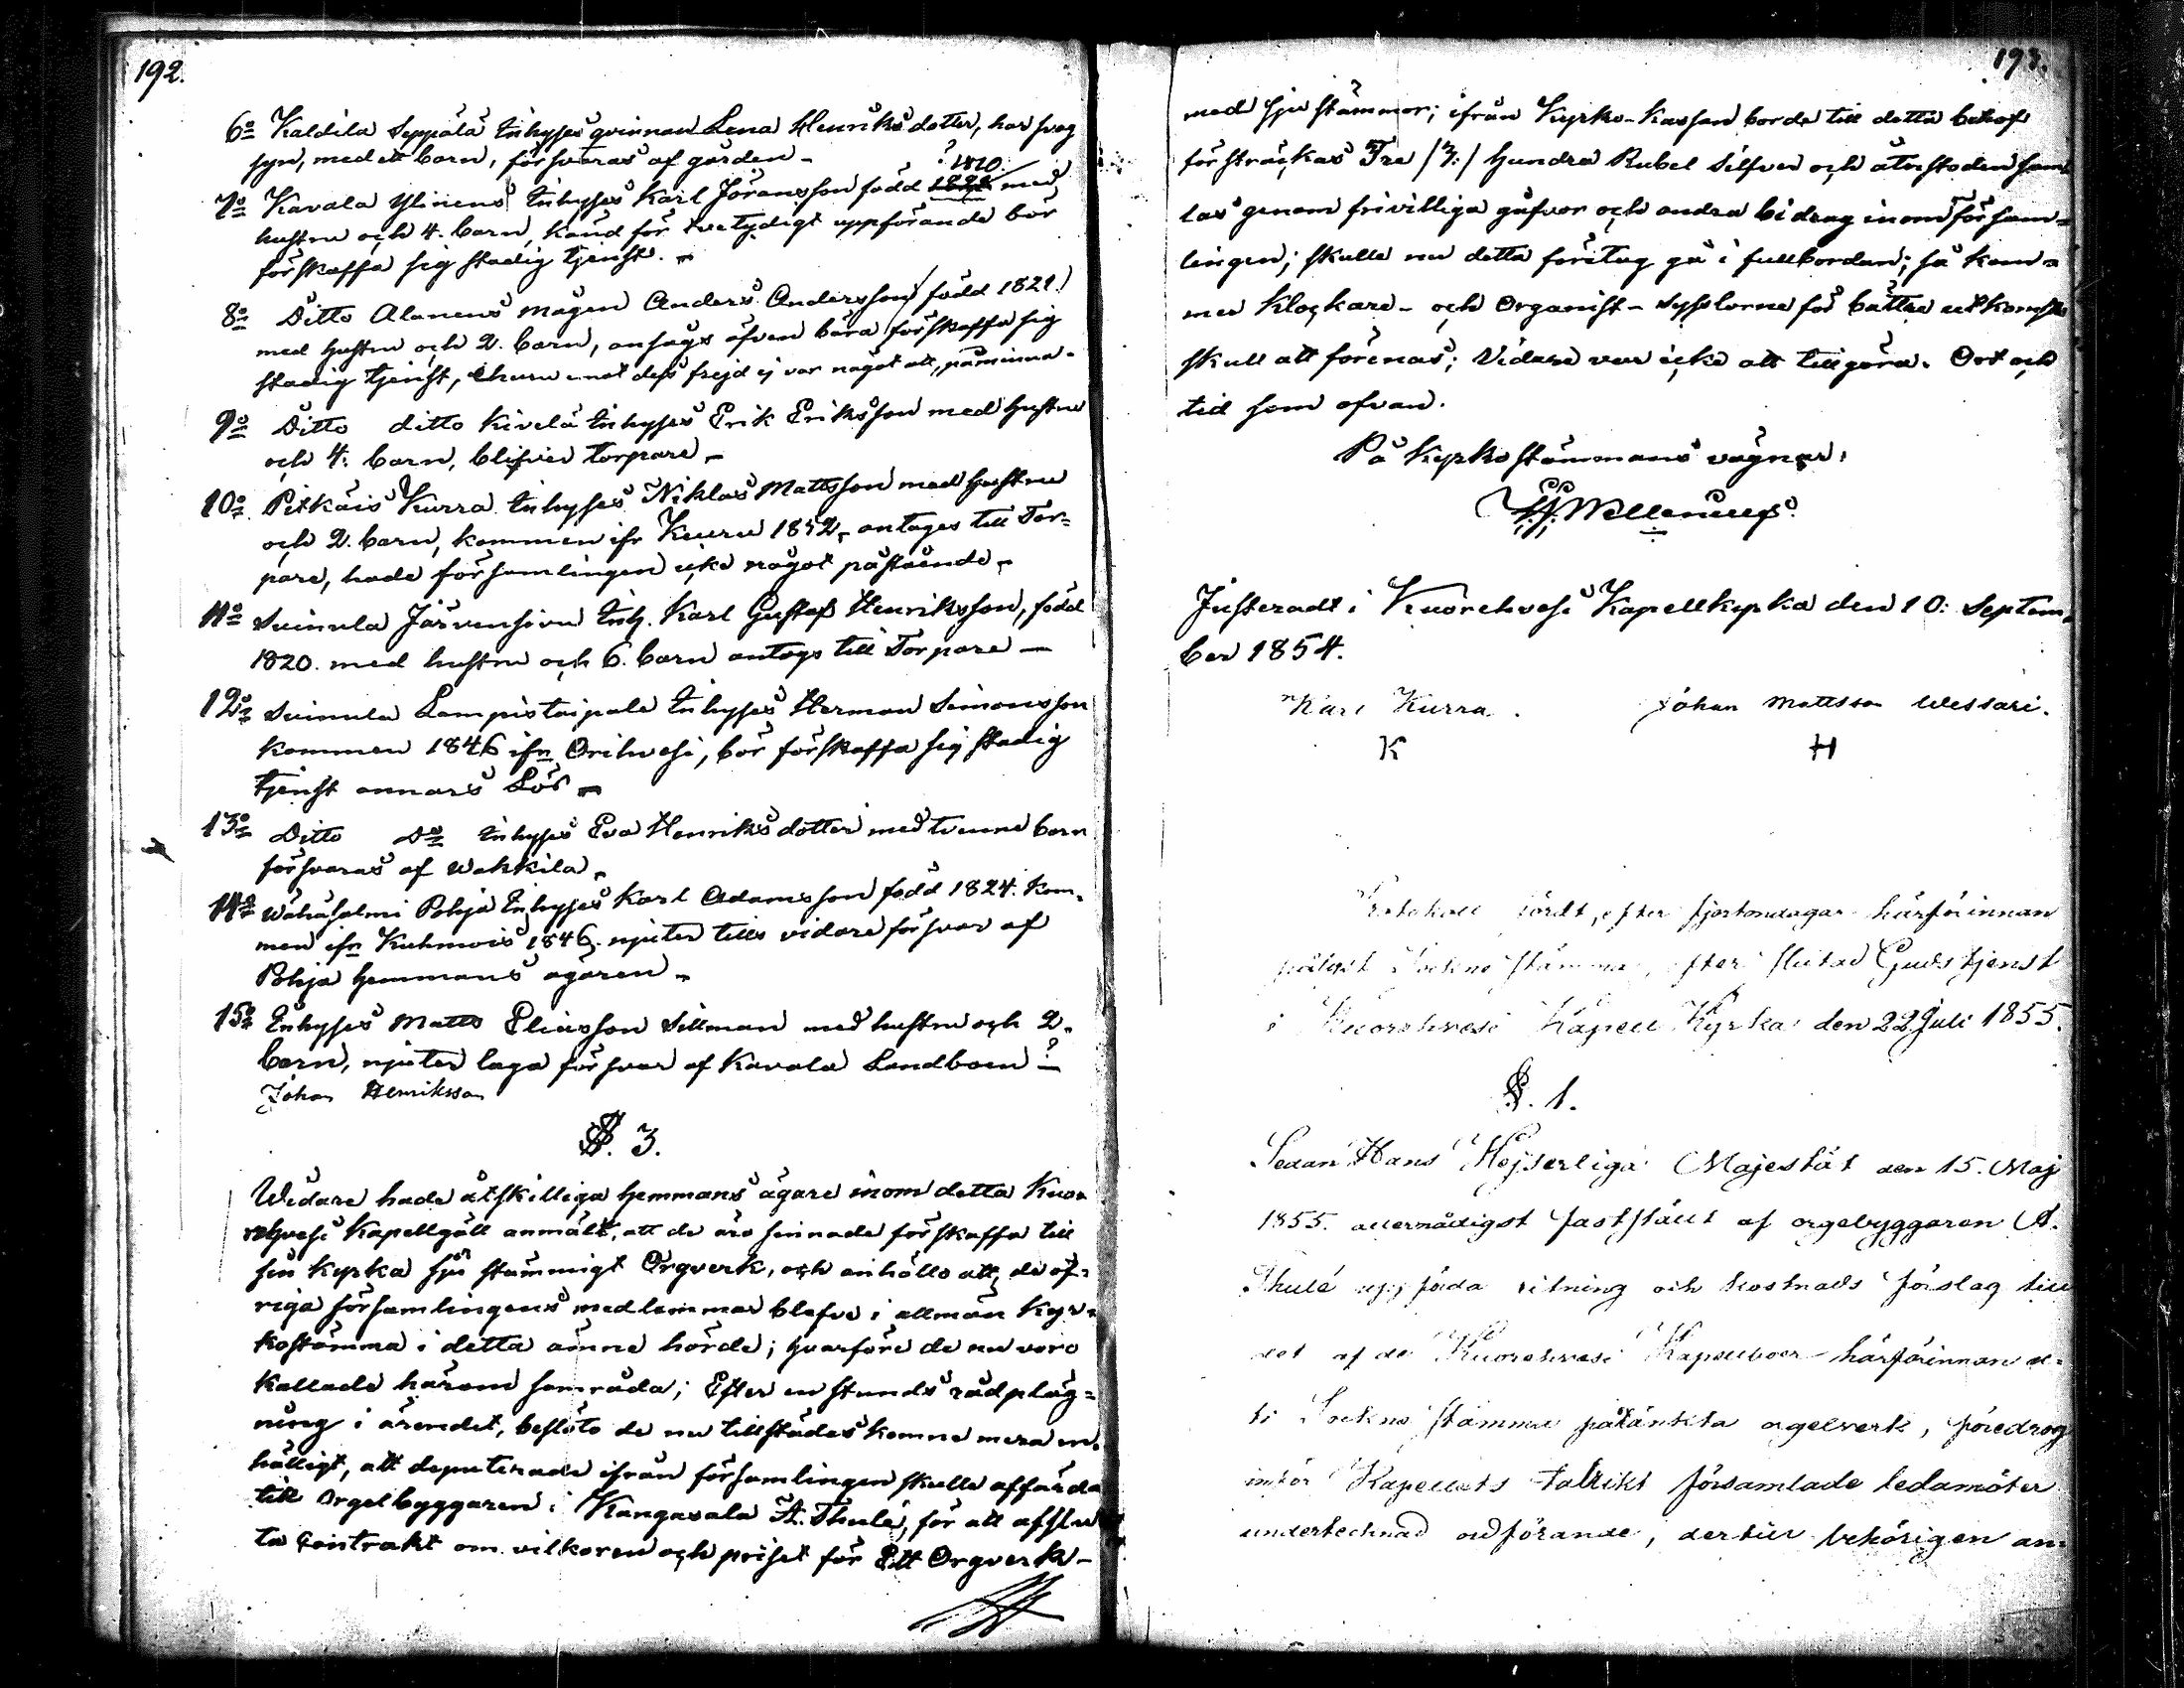 192.
6o Kaldila Seppälä Inhyses qvinnan Lena Henriksdotter, har svag
syn, med ett barn, försvaras af gården –
? 1820
7o Kavala Ylinens Inhyses Karl Jöransson född med
hustru och 4. barn, känd för tvetydigt uppförande bör
förskaffa sig stadig tjenst. –
8o Ditto Alanens mågen Anders Andersson / född 1821)
med hustru och 2. barn, ansågs äfven böra förskaffa sig
stadig tjenst, ehuru emot dess frejd ej var något att påminna.
9o Ditto ditto Kivelä Inhyses Erik Eriksson med hustru
och 4. barn, blifvit torpare –
10o Pitkäis Kurra Inhyses Niklas Mattsson med hustru
och 2. barn, kommen ifr Kuru 1852, antages till Tor=
pare, hade församlingen icke något påstående –
11o Suinula Järvensivu Inh. Karl Gustaf Henriksson, född
1820. med hustru och 6. barn antogs till Torpare –
12o Suinula Lampistaipale Inhyses Herman Simonsson
kommen 1846 ifn Orihvesi, bör förskaffa sig stadig
tjenst annars Lös –
13o Ditto Do Inhyses Eva Henriksdotter med tvenne barn
försvaras af Wahkila –
14o Wähäsalmi Pohja Inhyses Karl Adamsson född 1824. kom=
men ifn Kuhmois 1846. njuter tills vidare försvar af
Pohja hemmans ägaren –
15o Inhyses Matts Eliasson Sillman med hustru och 2.
barn, njuter laga försvar af Kavala Landboen ? –
Johan Henriksson
§. 3.
Widare hade åtskilliga hemmans ägare inom detta Kuo=
rehvesi Kapellgäll anmält, att de äro sinnade förskaffa till
sin kyrka sju stämmigt Orgverk, och anhöllo att, de öf=
riga församlingens medlemmar blefve i allmän Kyr=
kostämma i detta ämne hörde; hvarföre de nu voro
kallade härom samråda; Efter en stunds rådpläg=
ning i ärendet, beslöto de nu tillstädes komne mera en=
hälligt, att deputerade ifrån församlingen skulle affärda
till Orgelbyggaren i Kangasala A. Thulé, för att afslu
ta Contrakt om vilkoren och priset för Ett Orgverk –
193.
med sju stämmor; ifrån Kyrko-Kassan borde till detta behof
försträckas Tre /3:/ hundra Rubel Silfver och återstoden sam
las genom frivilliga gåfvor och andra bidrag inom försam=
lingen; skulle nu detta företag gå i fullbordan; så kom=
mer Klockare- och Organist-sysslorne för bättre utkomsts
skull att förenas; Vidare var icke att tillgöra. Ort och
tid som ofvan.
På Kyrkostämmans vägnar,
Justeradt i Kuorehvesi Kapellkyrka den 10: Septem=
ber 1854.
Karl Kurra. Johan Mattsson Wessari.
K H
Protokoll fördt, efter fjortondagar härförinnan
pålyst Sockne stämma, efter slutad Gudstjenst
i Kuorehvesi Kapell Kyrka den 22 Juli 1855.
§. 1.
Sedan Hans Kejserliga Majestät den 15. Maj
1855. allernådigst fastställt af orgelbyggaren A.
Thulé uppgjorda ritning och kostnads förslag till
det af de Kuorehvesi Kapellboer härförinnan å
ti Sockne stämma påtänkta orgelverk, föredrog
inför Kapellets talrikt församlade ledamöter
undertecknad ordförande, dertill behörigen an=